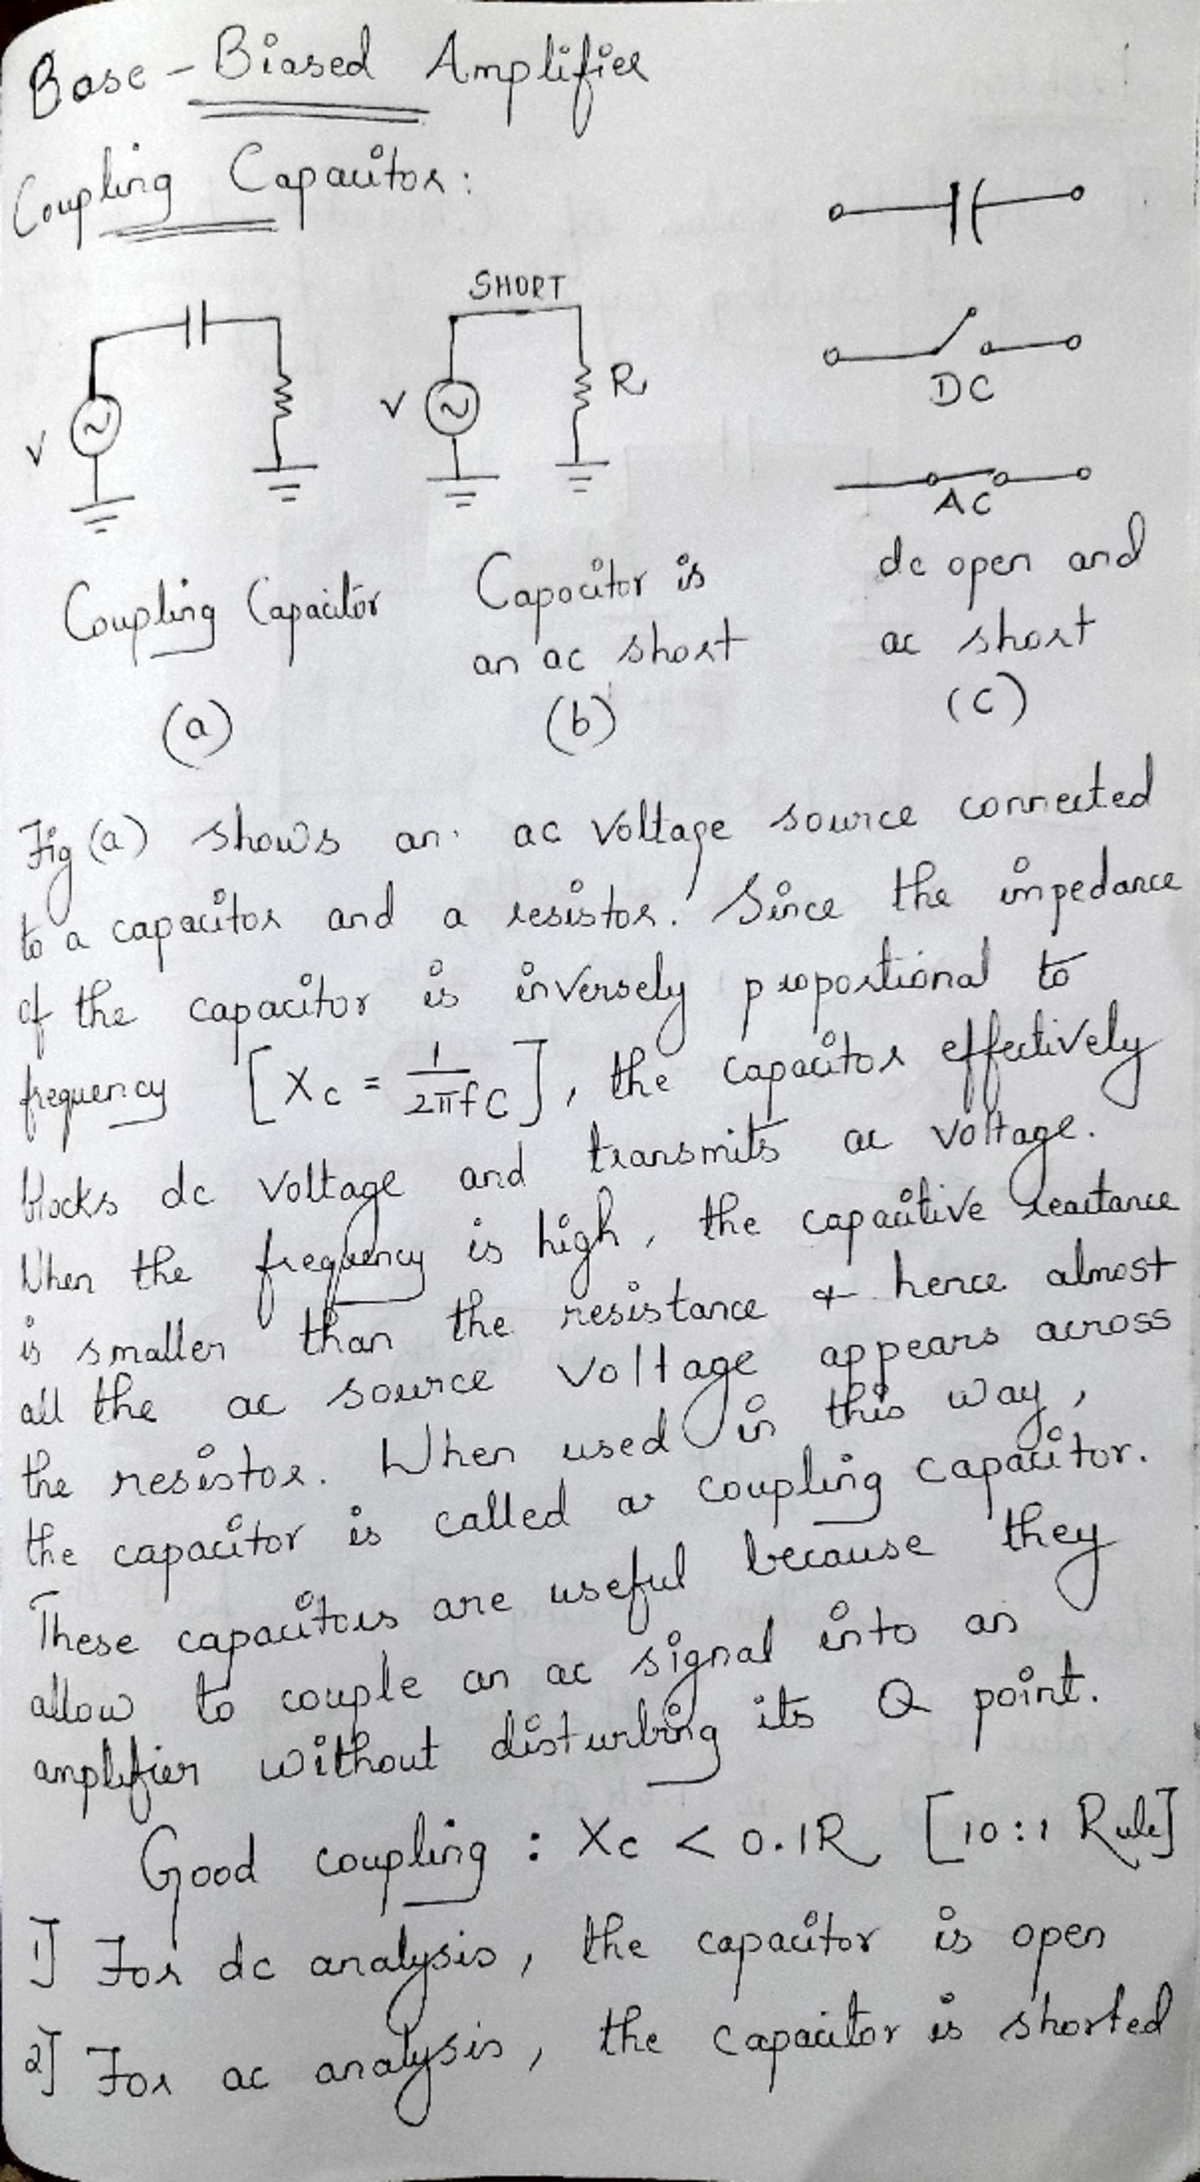 Base-Biased Amplifier
Coupling Capacitor:
SHORT
V
V
R
DC
AC
Coupling Capacitor
(a)
Capacitor is
an ac short
(b)
dc open and
ac short
(c)
Fig (a) shows an ac voltage source connected
to a capacitor and a resistor. Since the impedance
of the capacitor is inversely proportional to
frequency [Xc = 1/2πfC], the capacitor effectively
blocks dc voltage and transmits ac voltage.
When the frequency is high, the capacitive reactance
is smaller than the resistance & hence almost
all the ac source voltage appears across
the resistor. When used in this way,
the capacitor is called a coupling capacitor.
These capacitors are useful because they
allow to couple an ac signal into an
amplifier without disturbing its Q point.
Good coupling : Xc < 0.1R [10:1 Rule]
1] For dc analysis, the capacitor is open
2] For ac analysis, the capacitor is shorted